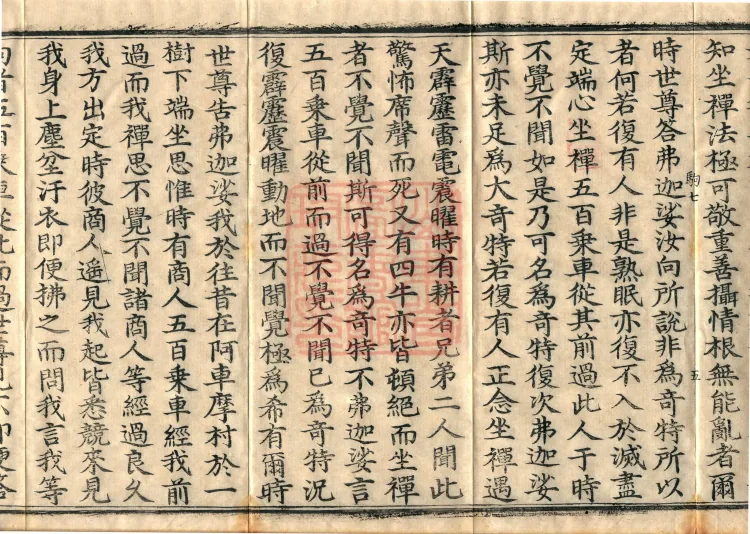 知坐禪法極可敬重善攝情根無能亂者爾
時世尊答弗迦娑汝向所說非為奇特所以
駒七
五
者何若復有人非是熟眠亦復不入於滅盡
定端心坐禪五百乗車從其前過此人于時
不覺不聞如是乃可名為奇特復次弗迦娑
斯亦未足為大奇特若復有人正念坐禪遇
天霹靂雷電震曜時有耕者兄弟二人聞此
驚怖席聲而死又有四牛亦皆頓絕而坐禪
者不覺不聞斯可得名為奇特不弗迦娑言
五百乗車從前而過不覺不聞已為奇特況
復霹靂震曜動地而不聞覺極為希有爾時
世尊告弗迦娑我於往昔在阿車摩村於一
樹下端坐思惟時有商人五百乗車經我前
過而我禪思不覺不聞諸商人等經過良久
我方出定時彼商人遥見我起皆悉競來見
我身上塵坌汙衣即便拂之而問我言我等
向者五百乗車從此而過世尊見不即便答